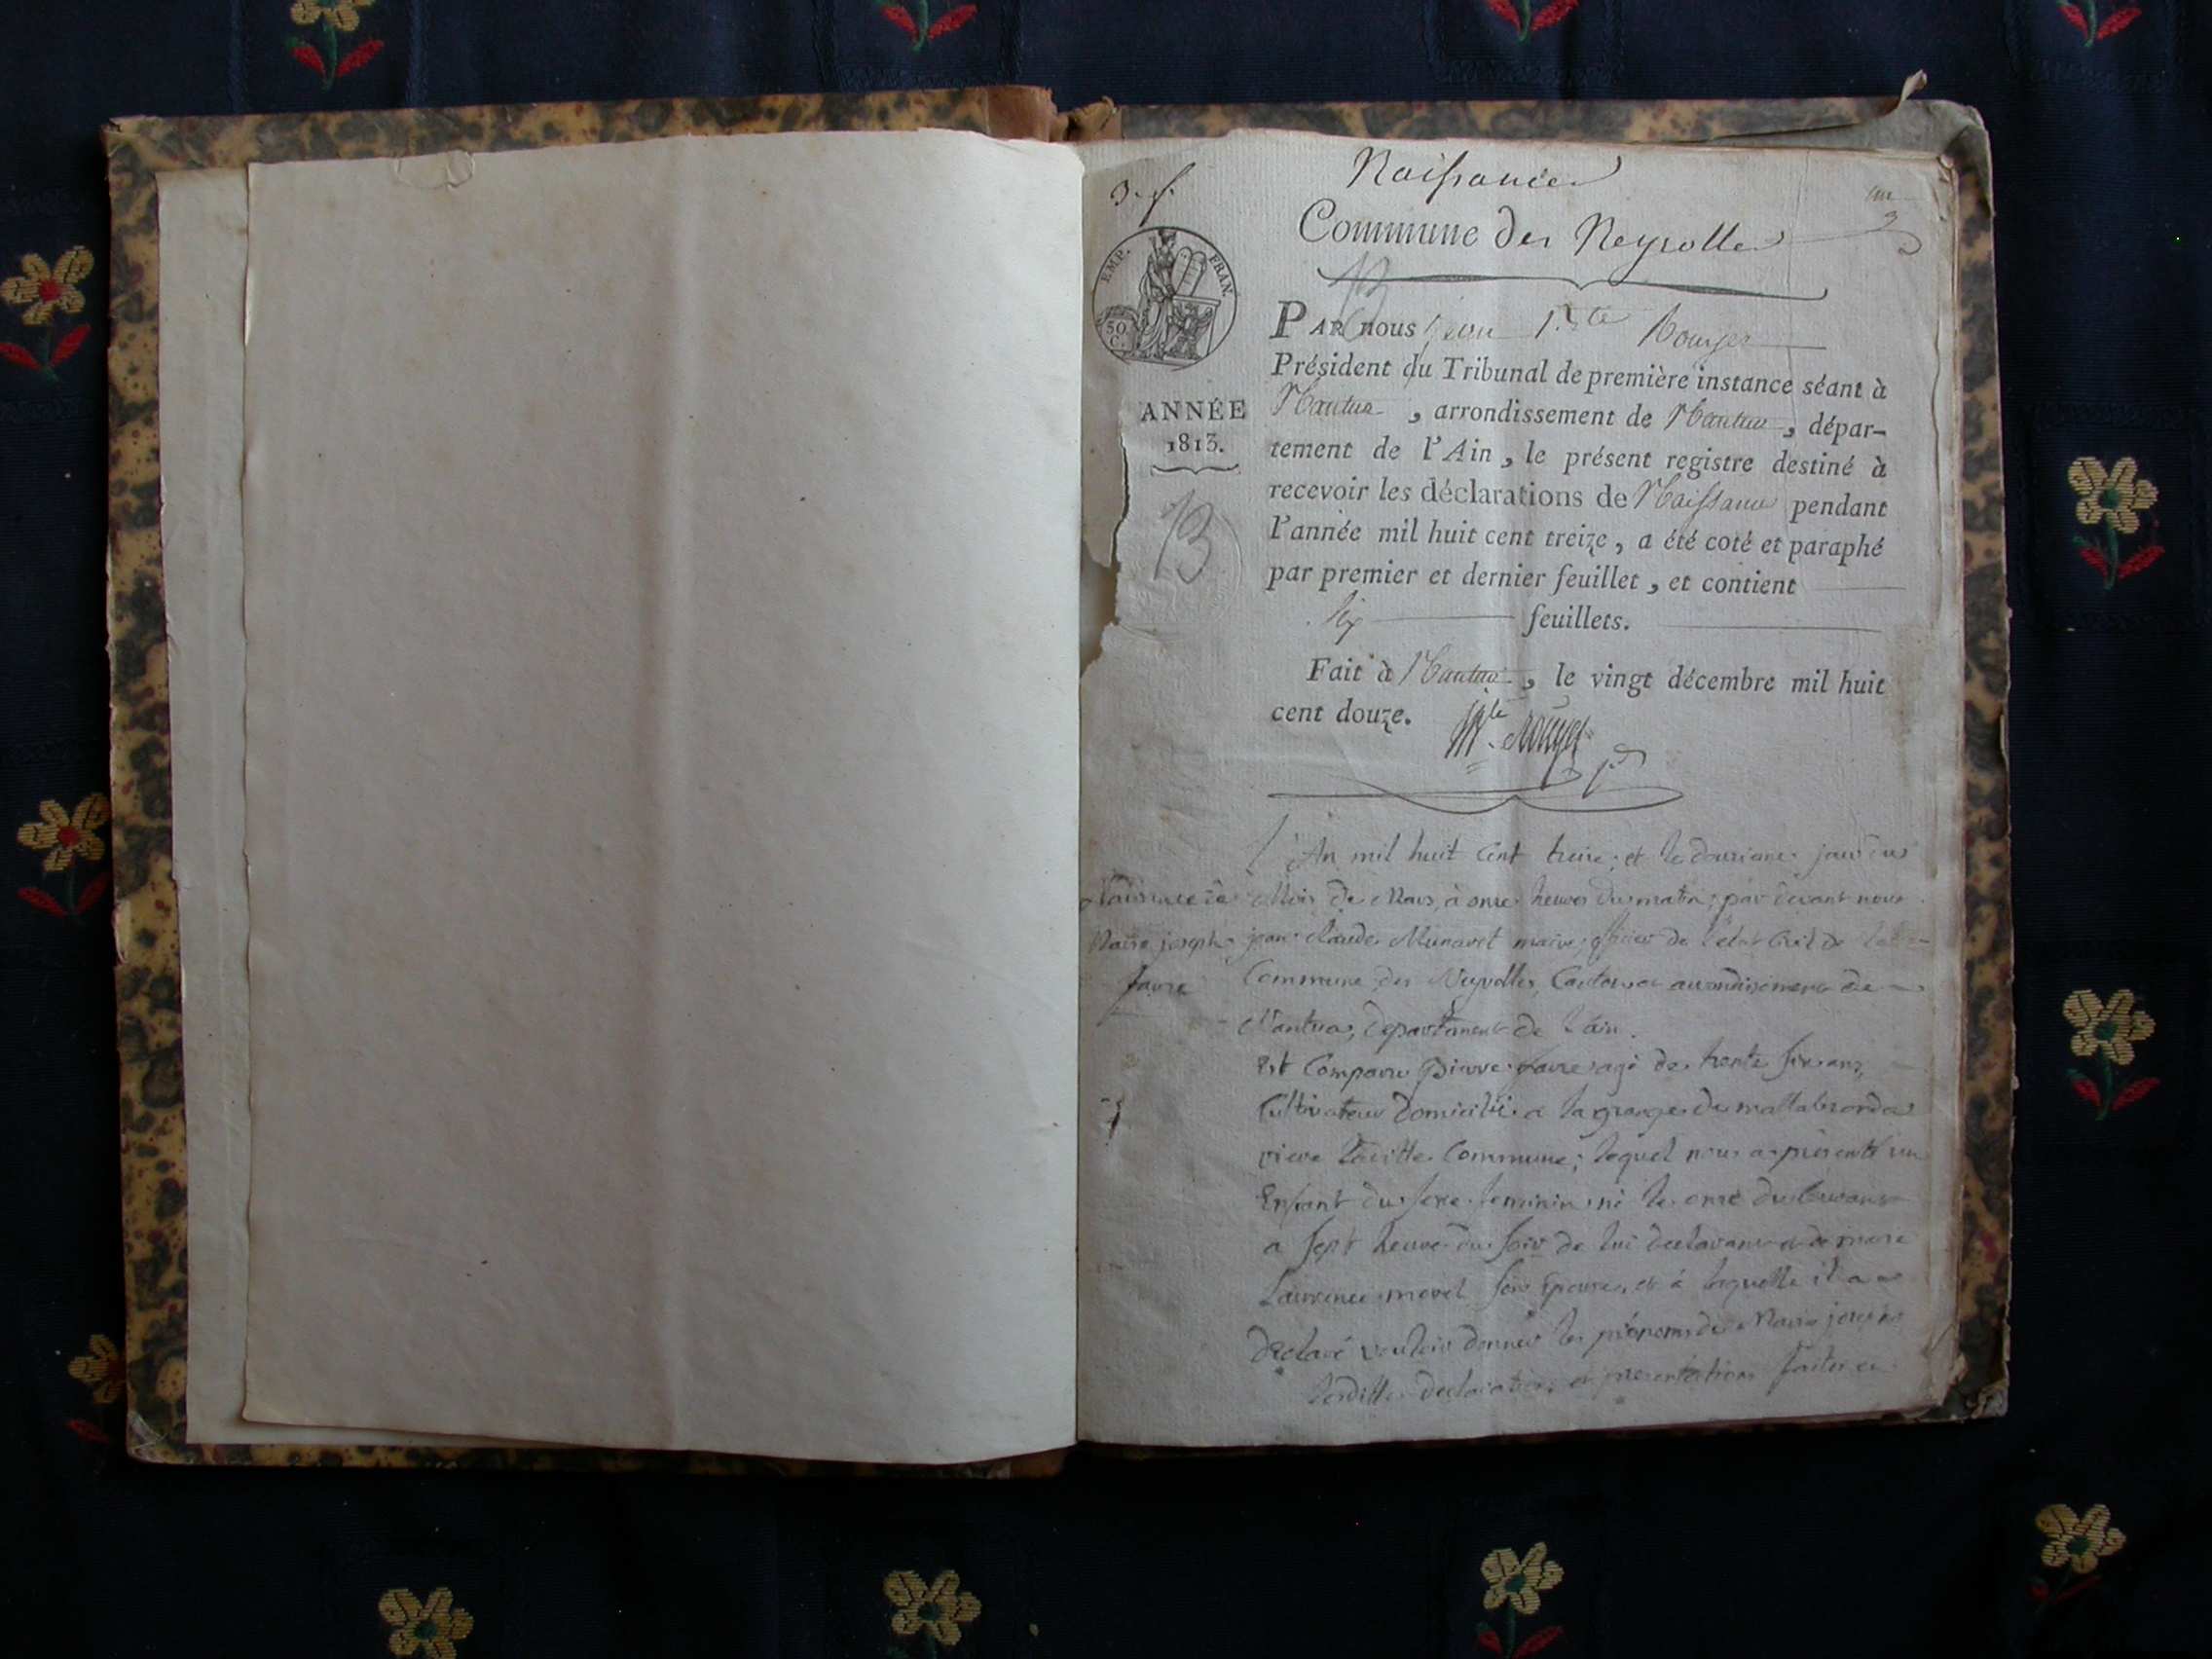 Naissances
3. f.
Commune des Neyrolles
EMP. FRAN.
50 C.
ANNÉE
1813.
13
PAR nous Jean Bte Rouyer
Président du Tribunal de première instance séant à
Nantua, arrondissement de Nantua, dépar-
tement de l'Ain, le présent registre destiné à
recevoir les déclarations de Naissance pendant
l'année mil huit cent treize, a été coté et paraphé
par premier et dernier feuillet, et contient
six feuillets.
Fait à Nantua, le vingt décembre mil huit
cent douze.
Naissance de
Marie joseph
favre
L'An mil huit Cent treize, et le douzieme jour du
Mois de Mars, à onze heures du matin, par devant nous
jean Claude Munaret maire officier de l'état Civil de
Commune des Neyrolles, Canton et arrondissement de
Nantua, departement de l'ain.
Est Comparu Pierre favre agé de trente six ans,
Cultivateur Domicilié a la grange du
riere laditte Commune; lequel nous a présenté un
Enfant du sexe feminin né le onze du Courant
a sept heure du soir de lui declarant et de marie
Laurence morel son Epouse, et à laquelle il a
declaré vouloir donner les prénoms de Marie joseph
lesdittes declaration et presentation faites en